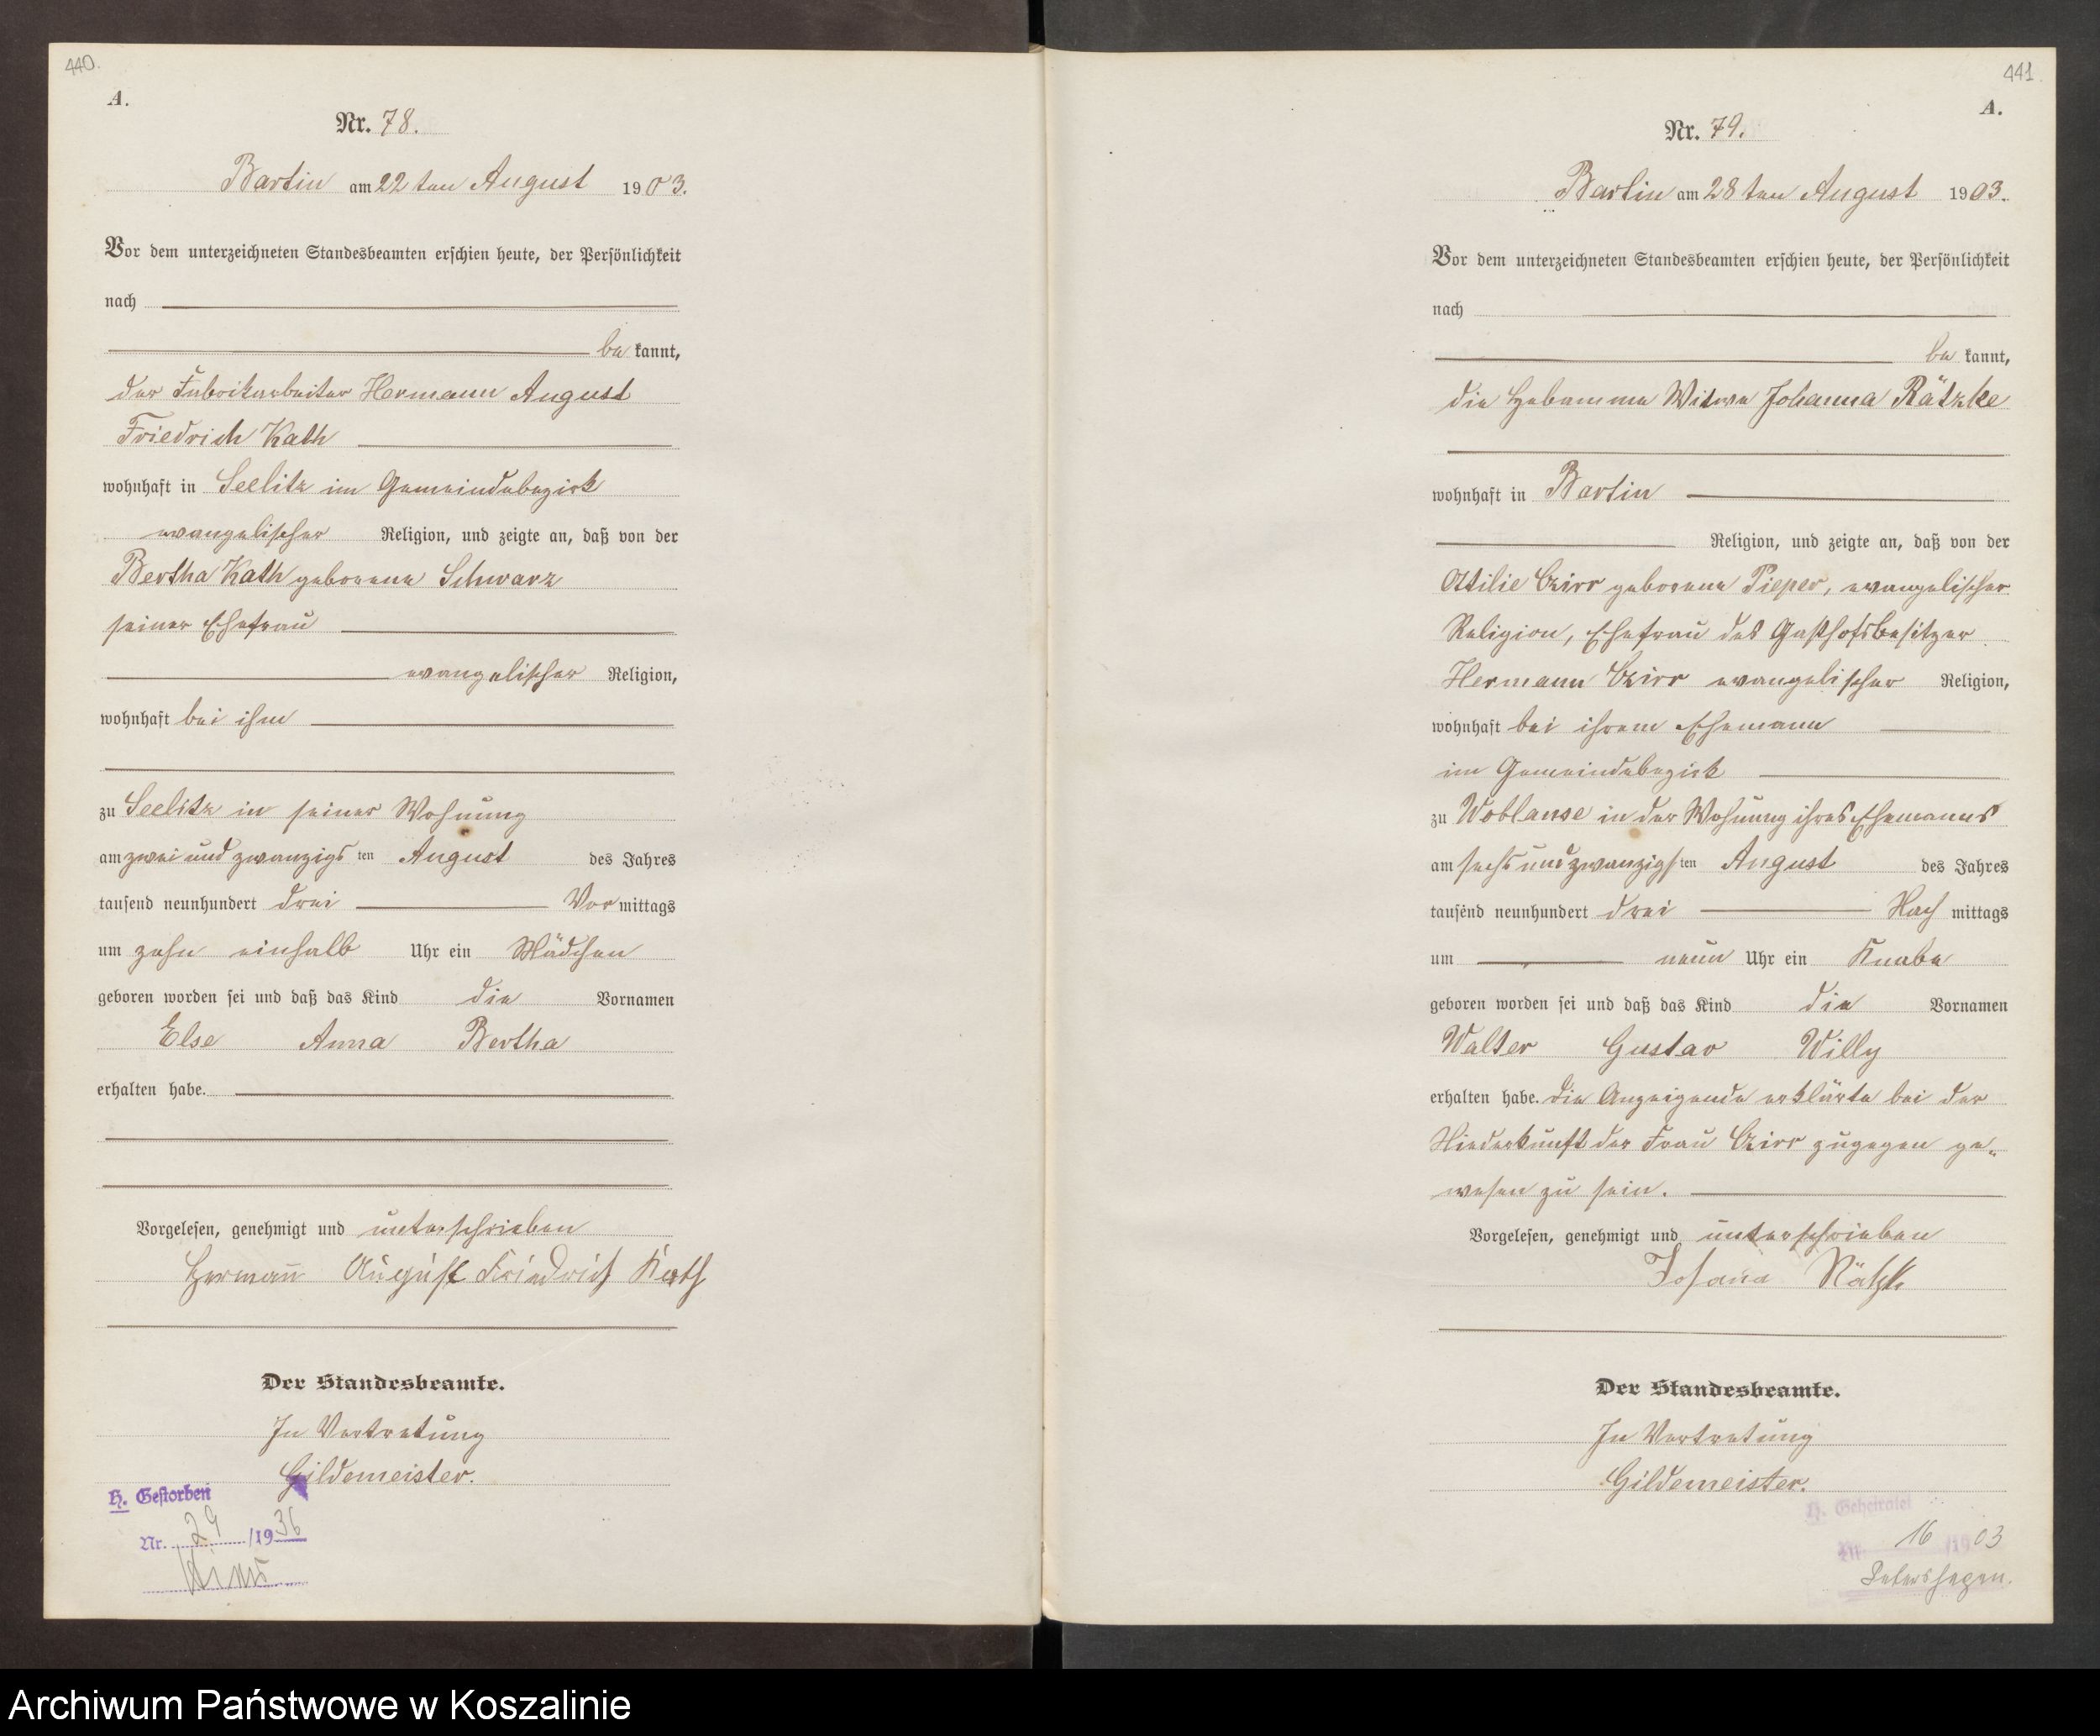 440.
A.
Nr. 78.
Bartin am 22ten August 1903.
Vor dem unterzeichneten Standesbeamten erschien heute, der Persönlichkeit
nach
bekannt,
der Fabrikarbeiter Hermann August
Friedrich Kath
wohnhaft in Seelitz im Gemeindebezirk
evangelischer Religion, und zeigte an, daß von der
Bertha Kath geborene Schwarz
seiner Ehefrau
evangelischer Religion,
wohnhaft bei ihm
zu Seelitz in seiner Wohnung
am zwei und zwanzigsten August des Jahres
tausend neunhundert drei Vormittags
um zehn einhalb Uhr ein Mädchen
geboren worden sei und daß das Kind die Vornamen
Else Anna Bertha
erhalten habe.
Vorgelesen, genehmigt und unterschrieben
Herman̄ August Friedrich Kath
Der Standesbeamte.
In Vertretung
Gildemeister.
H. Gestorben
Nr. 29/1936
441
A.
Nr. 79.
Bartin am 28ten August 1903.
Vor dem unterzeichneten Standesbeamten erschien heute, der Persönlichkeit
nach
bekannt,
die Hebamme Witwe Johanna Rätzke
wohnhaft in Bartin
Religion, und zeigte an, daß von der
Ottilie Czirr geborene Pieper, evangelischer
Religion, Ehefrau des Gasthofsbesitzer
Hermann Czirr evangelischer Religion,
wohnhaft bei ihrem Ehemann
im Gemeindebezirk
zu Woblanse in der Wohnung ihres Ehemanns
am sechs und zwanzigsten August des Jahres
tausend neunhundert drei Nachmittags
um neun Uhr ein Knabe
geboren worden sei und daß das Kind die Vornamen
Walter Gustav Willy
erhalten habe. Die Anzeigende erklärte bei der
Niederkunft der Frau Czirr zugegen ge-
wesen zu sein.
Vorgelesen, genehmigt und unterschrieben
Johana Rätzk
Der Standesbeamte.
In Vertretung
Gildemeister.
H. Geheiratet
Nr. 16/1903
Petershagen.
Archiwum Państwowe w Koszalinie